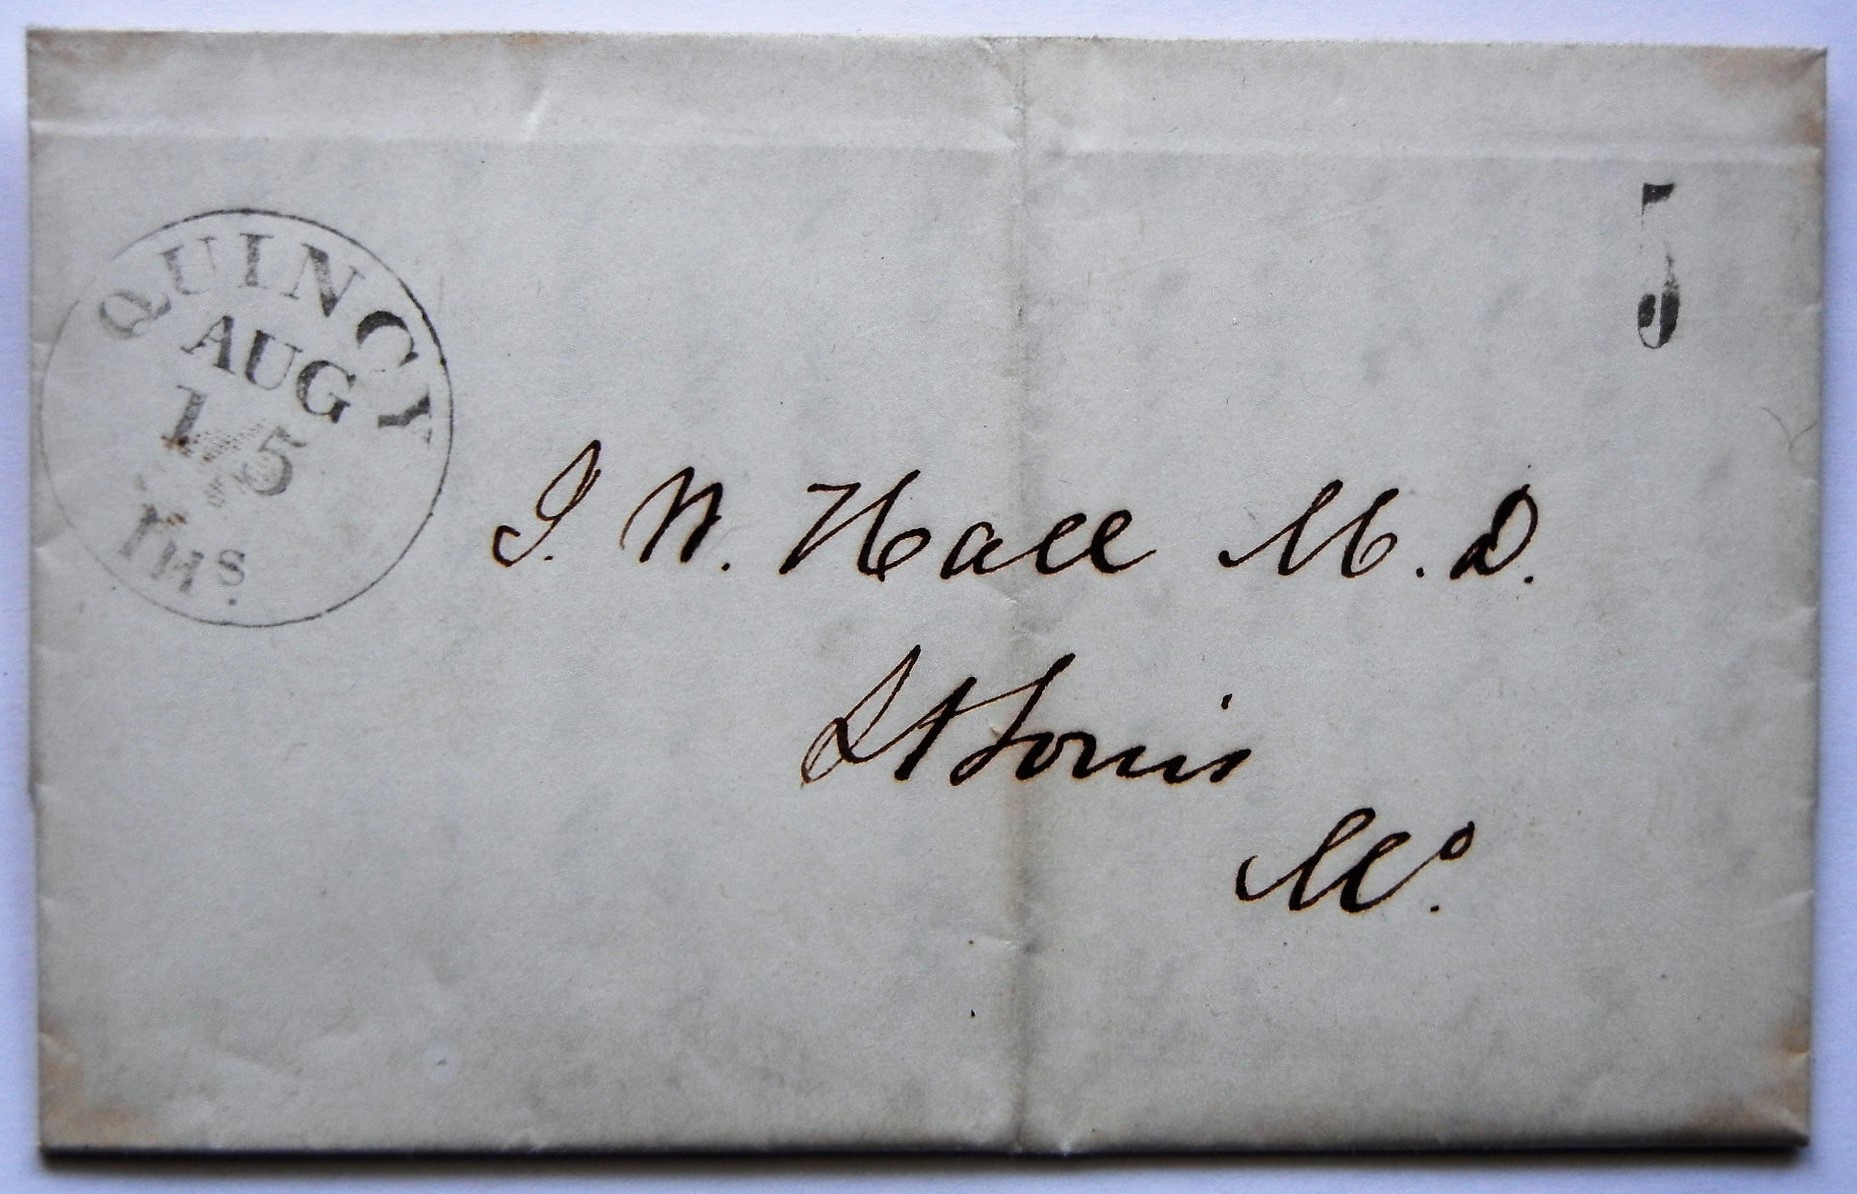 QUINCY
AUG
15
Ills.
5
J. W. Hall M. D.
St Louis
Mo.